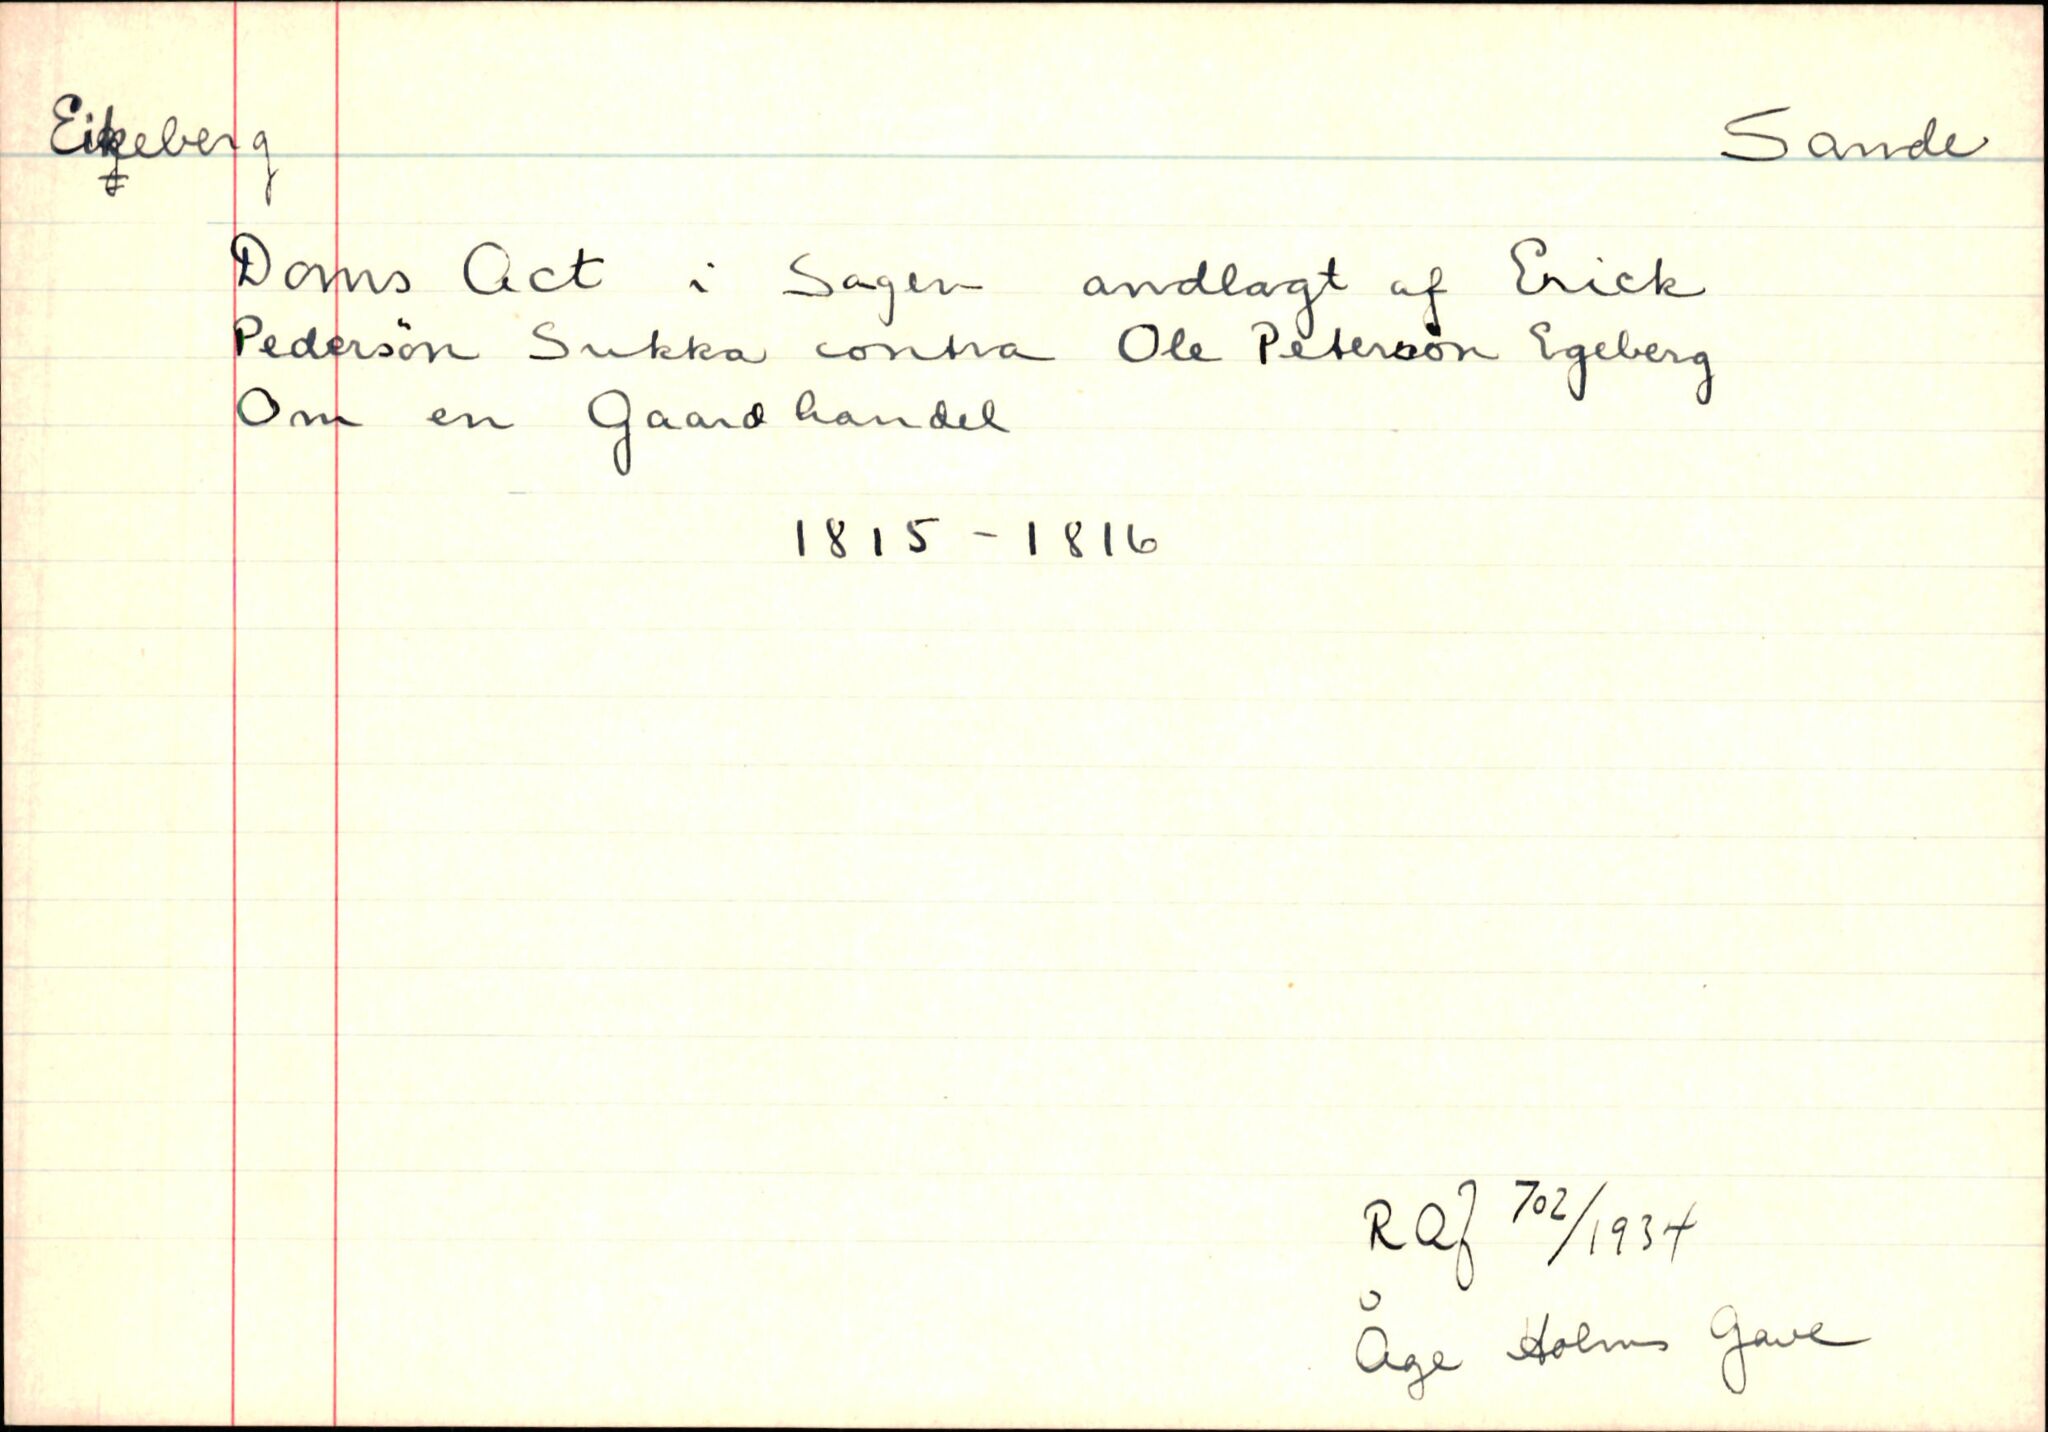 Eikeberg Sande
Doms Act i Sagen andlagt af Erick
Pedersön Sukka contra Ole Petersön Egeberg
Om en Gaardhandel
1815 - 1816
RAJ 702/1934
Åge Holms Gave